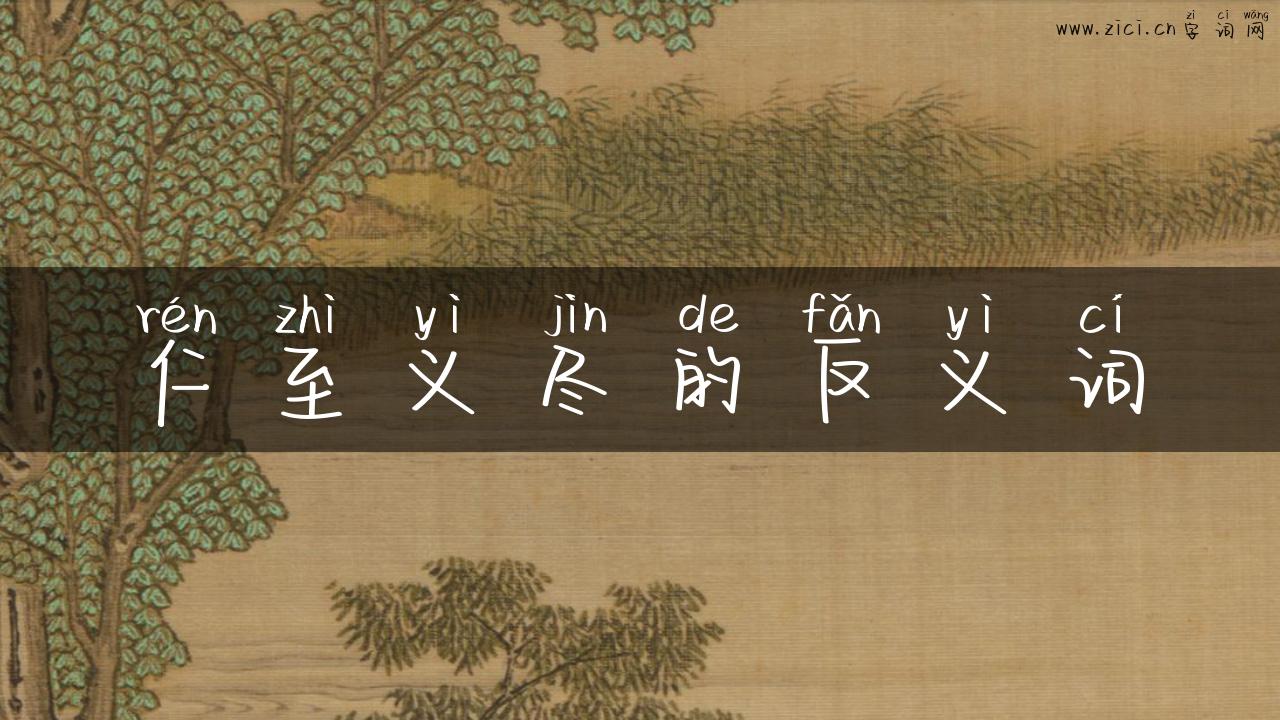 zì cí wǎng
www.zici.cn字词网
rén zhì yì jìn de fǎn yì cí
仁至义尽的反义词